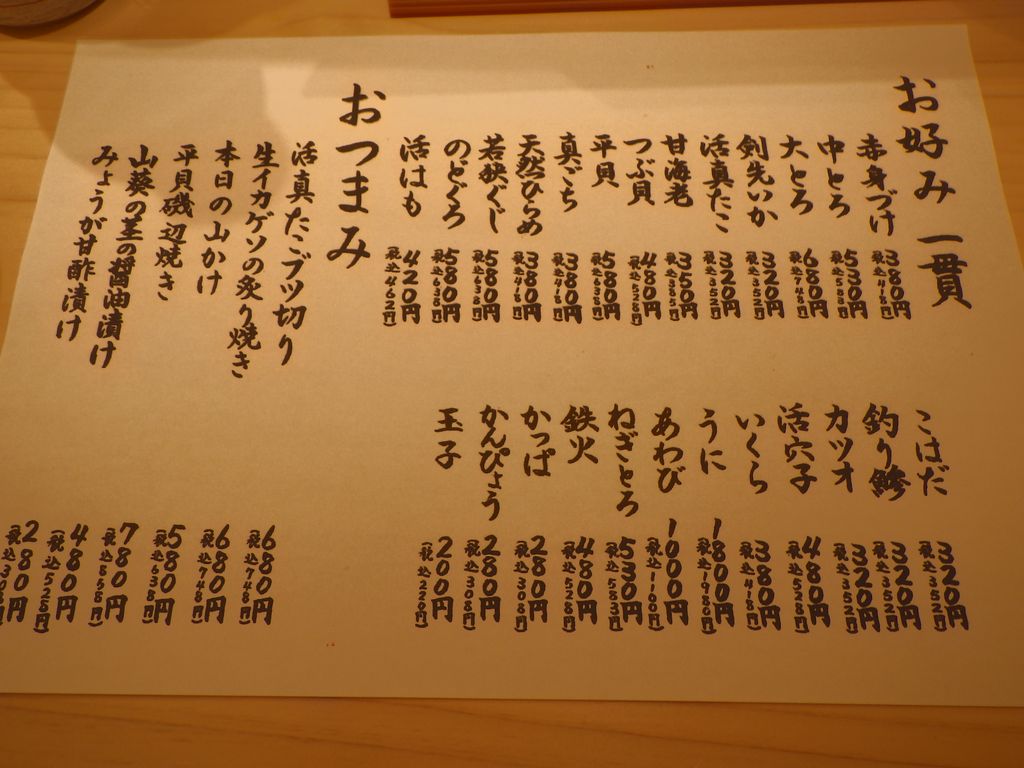 お好み 一貫
赤身づけ 380円 (税込418円)
中とろ 530円 (税込583円)
大とろ 680円 (税込748円)
剣先いか 320円 (税込352円)
活真たこ 320円 (税込352円)
甘海老 350円 (税込385円)
つぶ貝 480円 (税込528円)
平貝 580円 (税込638円)
真ごち 380円 (税込418円)
天然ひらめ 380円 (税込418円)
若狭ぐじ 580円 (税込638円)
のどぐろ 580円 (税込638円)
活はも 420円 (税込462円)
こはだ 320円 (税込352円)
釣り鯵 320円 (税込352円)
カツオ 320円 (税込352円)
活穴子 480円 (税込528円)
いくら 380円 (税込418円)
うに 1800円 (税込1980円)
あわび 1000円 (税込1100円)
ねぎとろ 530円 (税込583円)
鉄火 480円 (税込528円)
かっぱ 280円 (税込308円)
かんぴょう 280円 (税込308円)
玉子 200円 (税込220円)
おつまみ
活真たこブツ切り 680円 (税込748円)
生イカゲソの炙り焼き 680円 (税込748円)
本日の山かけ 580円 (税込638円)
平貝磯辺焼き 780円 (税込858円)
山葵の茎の醤油漬け 480円 (税込528円)
みょうが甘酢漬け 280円 (税込308円)